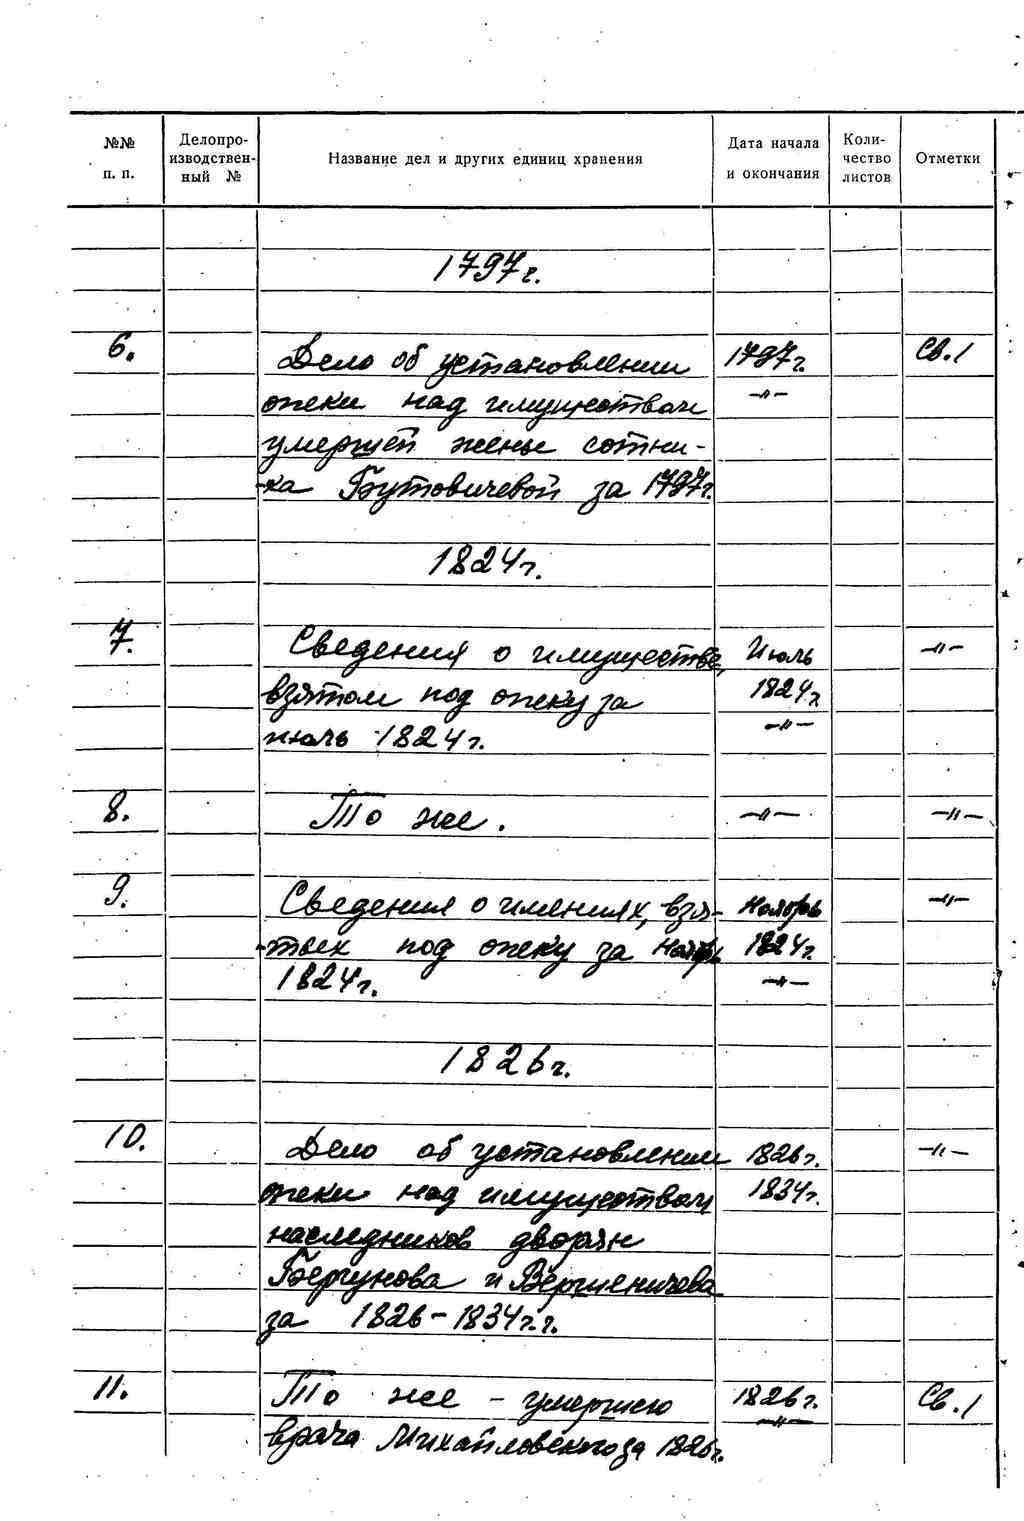 №№ п. п. Делопро- изводствен- ный № Название дел и других единиц хранения Дата начала и окончания Коли- чество листов Отметки
1797г.
6. Дело об установлении 1797г. Св.1
опеки над имуществом -"-
умершей жены сотни-
-ка Бутовичевой за 1797г.
1824г.
7. Сведения о имуществе, Июль -"-
взятом под опеку за 1824г.
июль 1824г. -"-
8. То же. -"- -"-
9. Сведения о имениях, взя- Ноябрь -"-
-тых под опеку за ноябрь 1824г.
1824г. -"-
1826г.
10. Дело об установлении 1826г. -"-
опеки над имуществом 1834г.
наследников дворян
и
за 1826-1834г.г.
11. То же - умершего 1826г. Св.1
врача Михайловского за 1826г. -"-